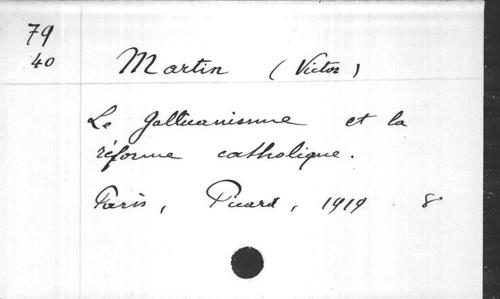 79
40
Martin (Victor)
Le Gallicanisme et la
réforme catholique.
Paris, Picard, 1919. 8